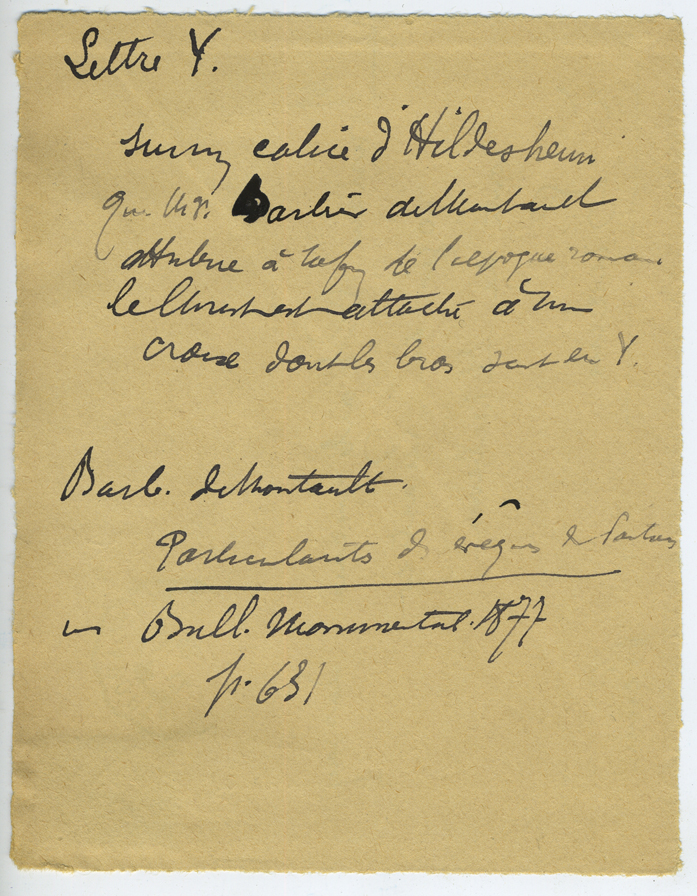 Lettre Y.
sur un calice d'Hildesheim
que Mgr. Barbier de Montault
attribue à la fin de l'époque romane
le Christ est attaché à une
croix dont les bras sont en Y.
Barb. de Montault.
Particularités des évêques de Poitiers
in Bull. Monumental. 1877
p. 631